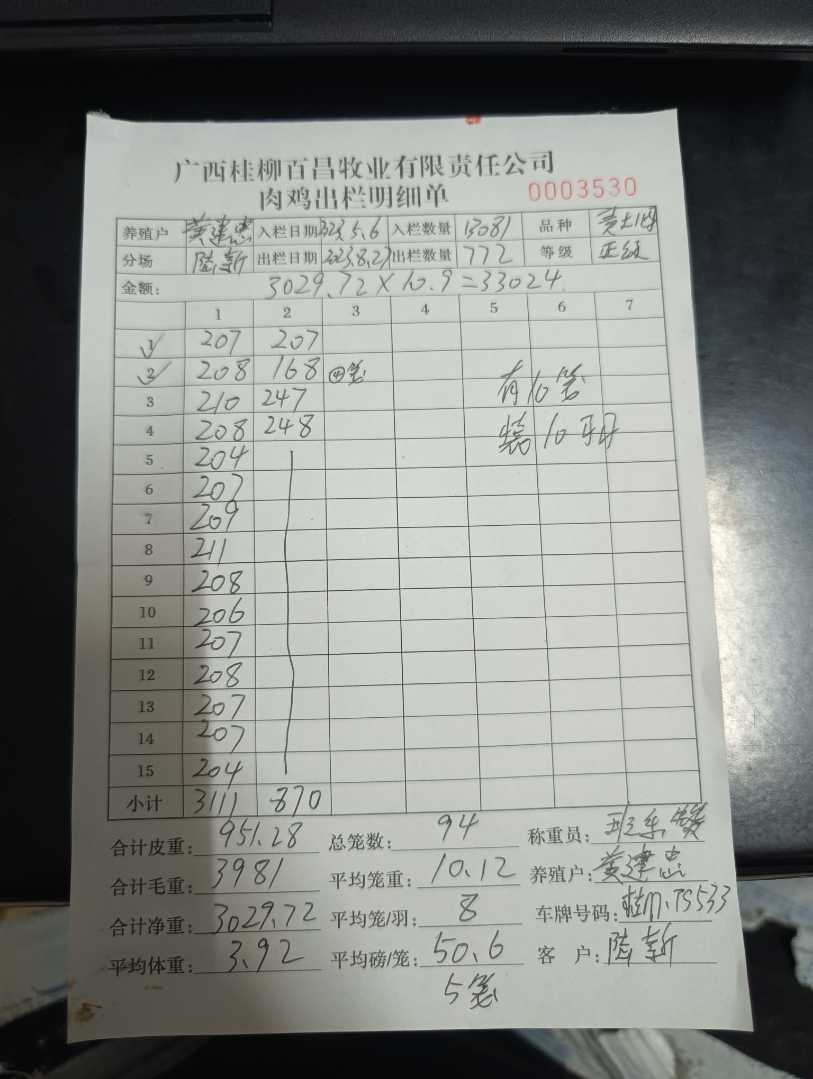 广西桂柳百昌牧业有限责任公司
肉鸡出栏明细单 0003530
养殖户 黄建忠 入栏日期 2023.5.6 入栏数量 13081 品种
分场 陆新 出栏日期 2023.8.27 出栏数量 772 等级
金额: 3029.72×10.9=33024
1 2 3 4 5 6 7
1 207 207
2 208 168 四笼 有10笼
3 210 247
4 208 248 装10只
5 204
6 207
7 209
8 211
9 208
10 206
11 207
12 208
13 207
14 207
15 204
小计 3111 870
合计皮重: 951.28 总笼数: 94 称重员:
合计毛重: 3981 平均笼重: 10.12 养殖户: 黄建忠
合计净重: 3029.72 平均笼/羽: 8 车牌号码:
平均体重: 3.92 平均磅/笼: 50.6 客 户: 陆新
5笼